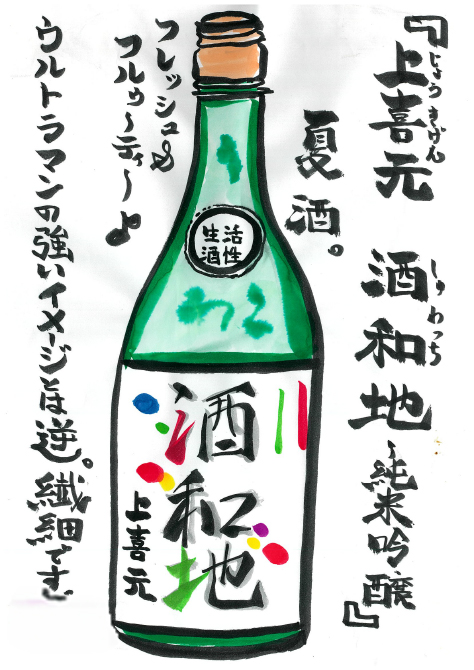 『上喜元 酒和地〜純米吟醸』
じょうきげん しゅわっち
夏酒。
フレッシュ&
フルゥ〜ティ〜♪
ウルトラマンの強いイメージとは逆。繊細です♪
活性
生酒
酒和地
上喜元